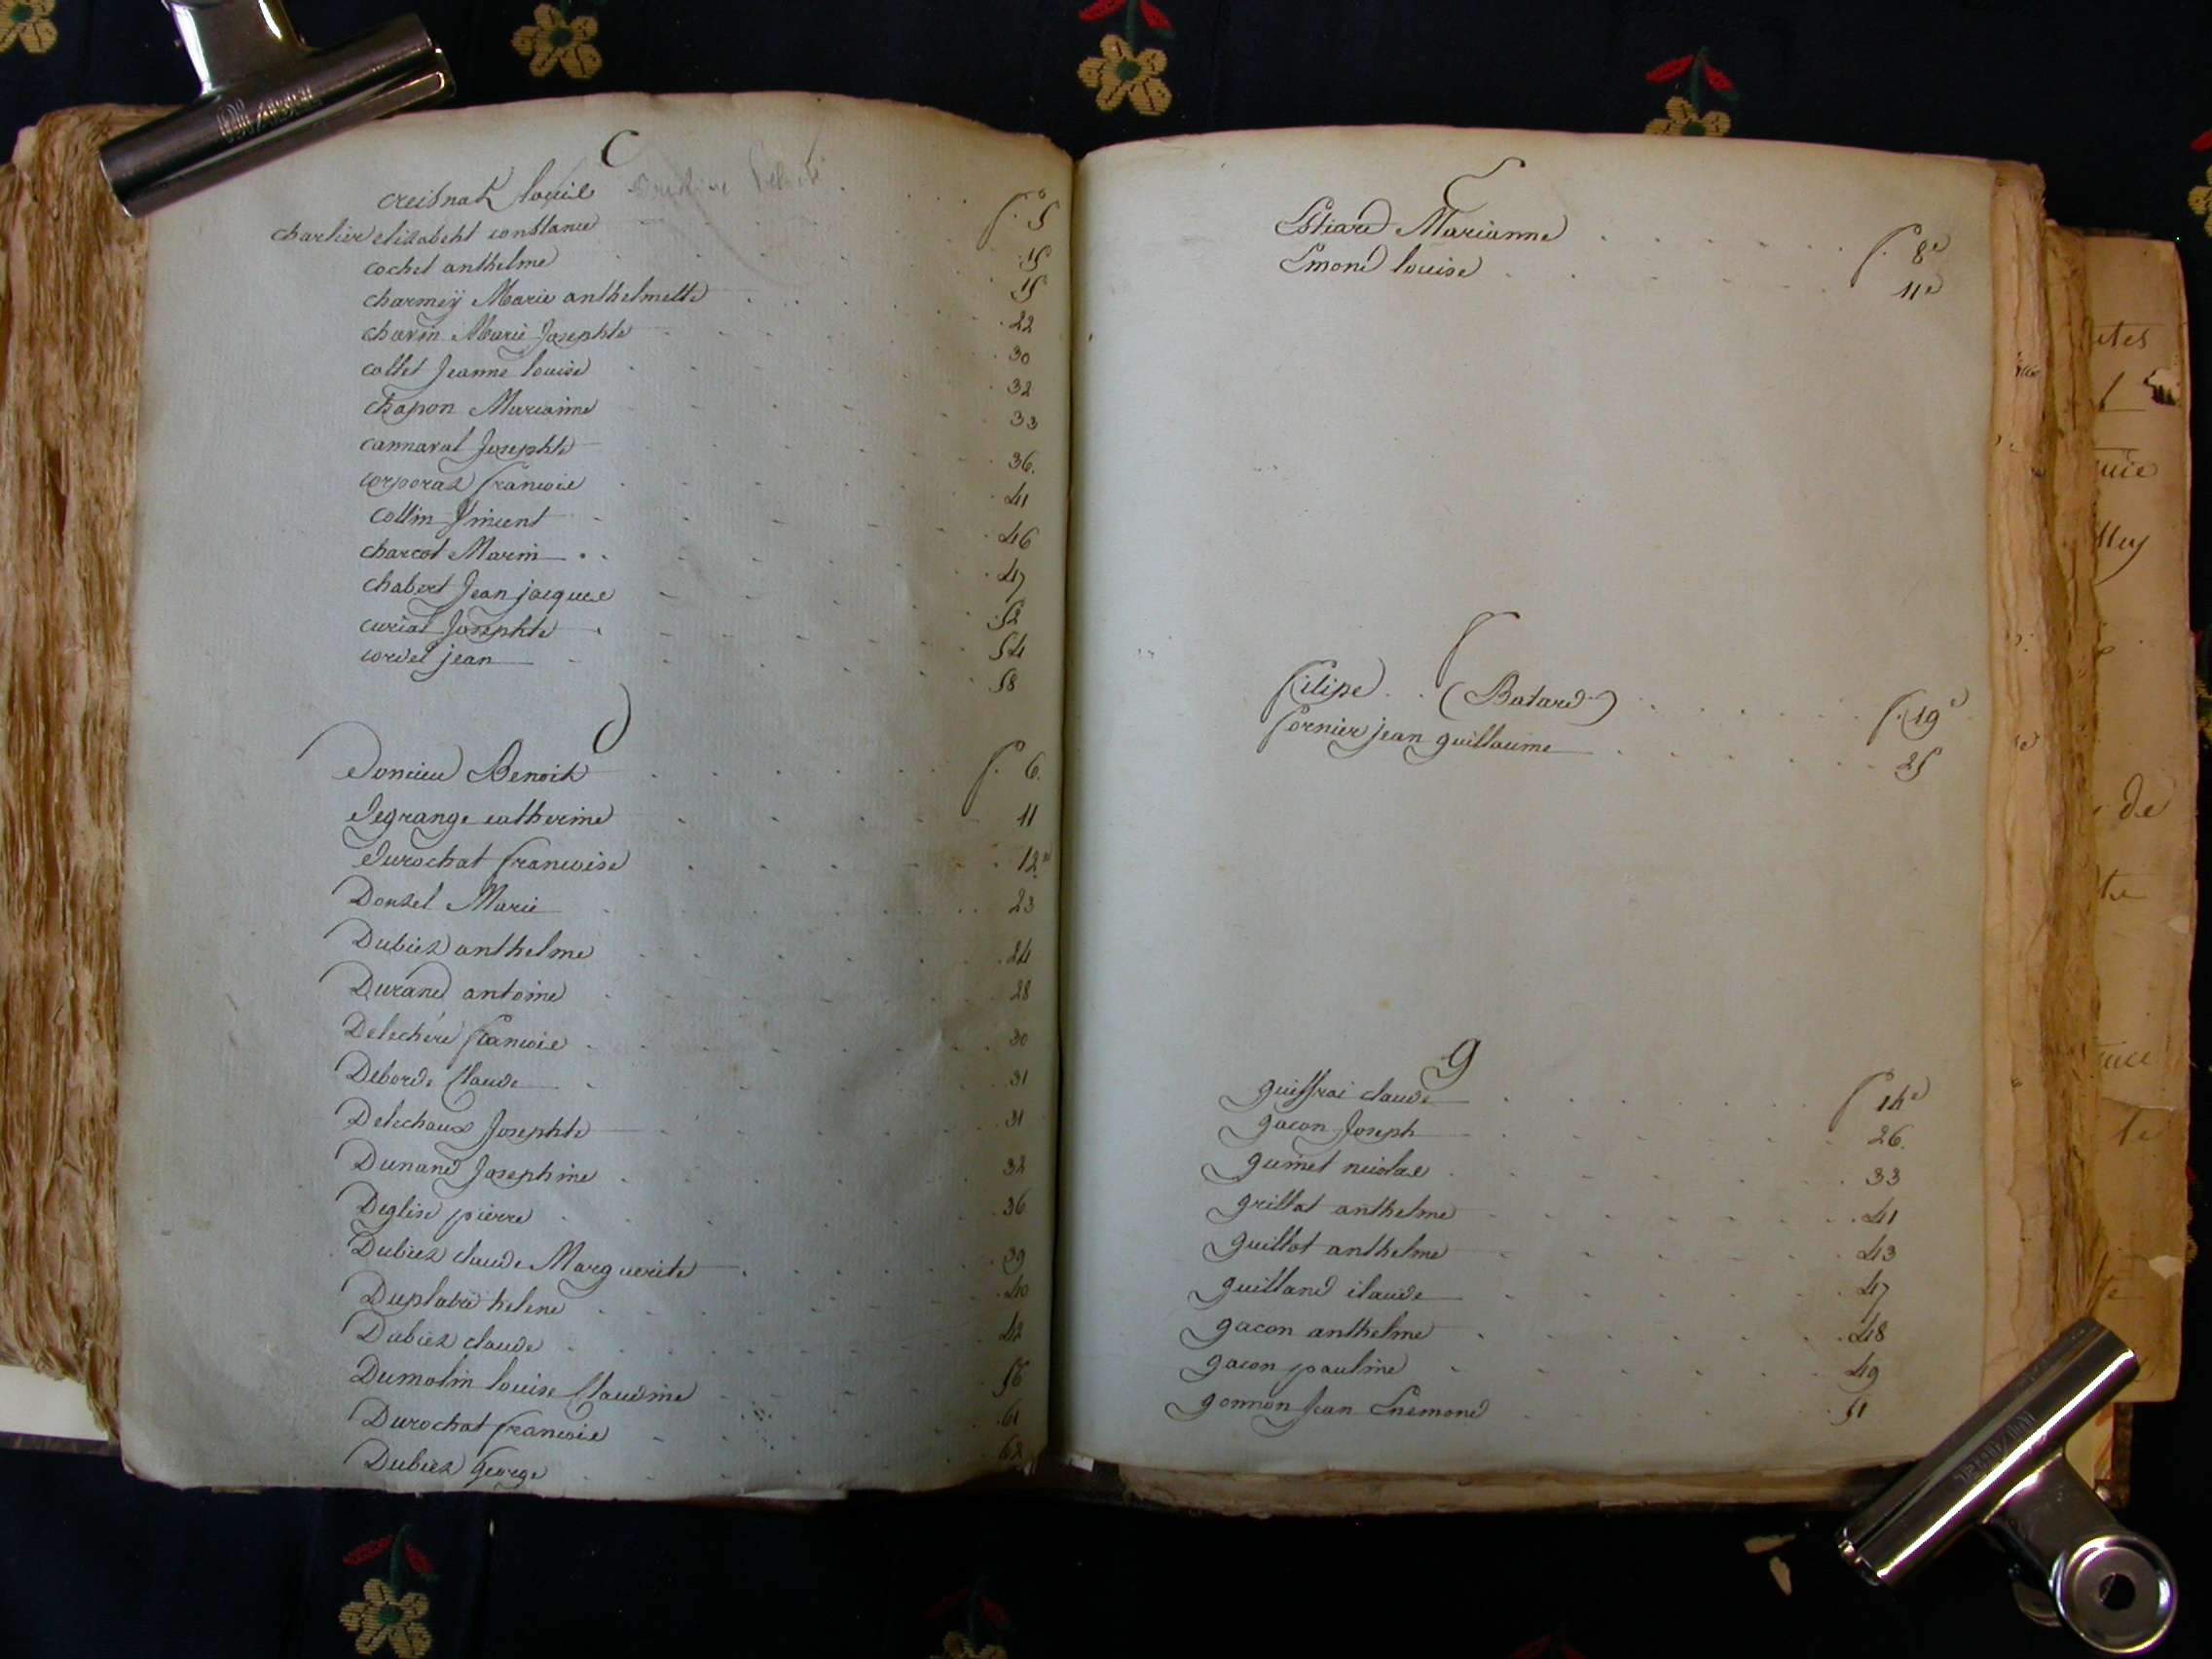 C
creisnat louise
f.o 5
charlier elisabeht constance
15
cochet anthelme
15
charmeÿ Marie anthelmette
22
chavin Marie Josephte
30
collet Jeanne louise
32
chapon Marianne
33
cannaval Josephte
36.
corporaz francois
41
collin Vincent
46
charcot Marin
47
chabert Jean jacques
52
curial Josephte
54
cordel jean
58
D
Doncieu Benoit
f. 6.
Degrange catherine
11
Durochat francoise
12
Donzel Marie
23
Dubiez anthelme
24
Durand antoine
28
Delechere francois
30
Debords Claude
31
Delechaux Josephte
31
Dunand Josephine
32
Deglise pierre
36
Dubiez claude Marguerite
39
Duplatre helene
40
Dubiez claude
42
Dumolin louise Claudine
56
Durochat francois
61
Dubiez George
62
E
Estiard Marianne
f. 8e
Emond louise
11e
f
filipe (Batard)
f. 19e
fornier jean guillaume
25
g
guiffrai claude
f 14e
gacon Joseph
26.
gumet nicolas
33
grillat anthelme
41
guillot anthelme
43
guilland claude
47
gacon anthelme
48
gacon pauline
49
gonnon Jean Enemond
51